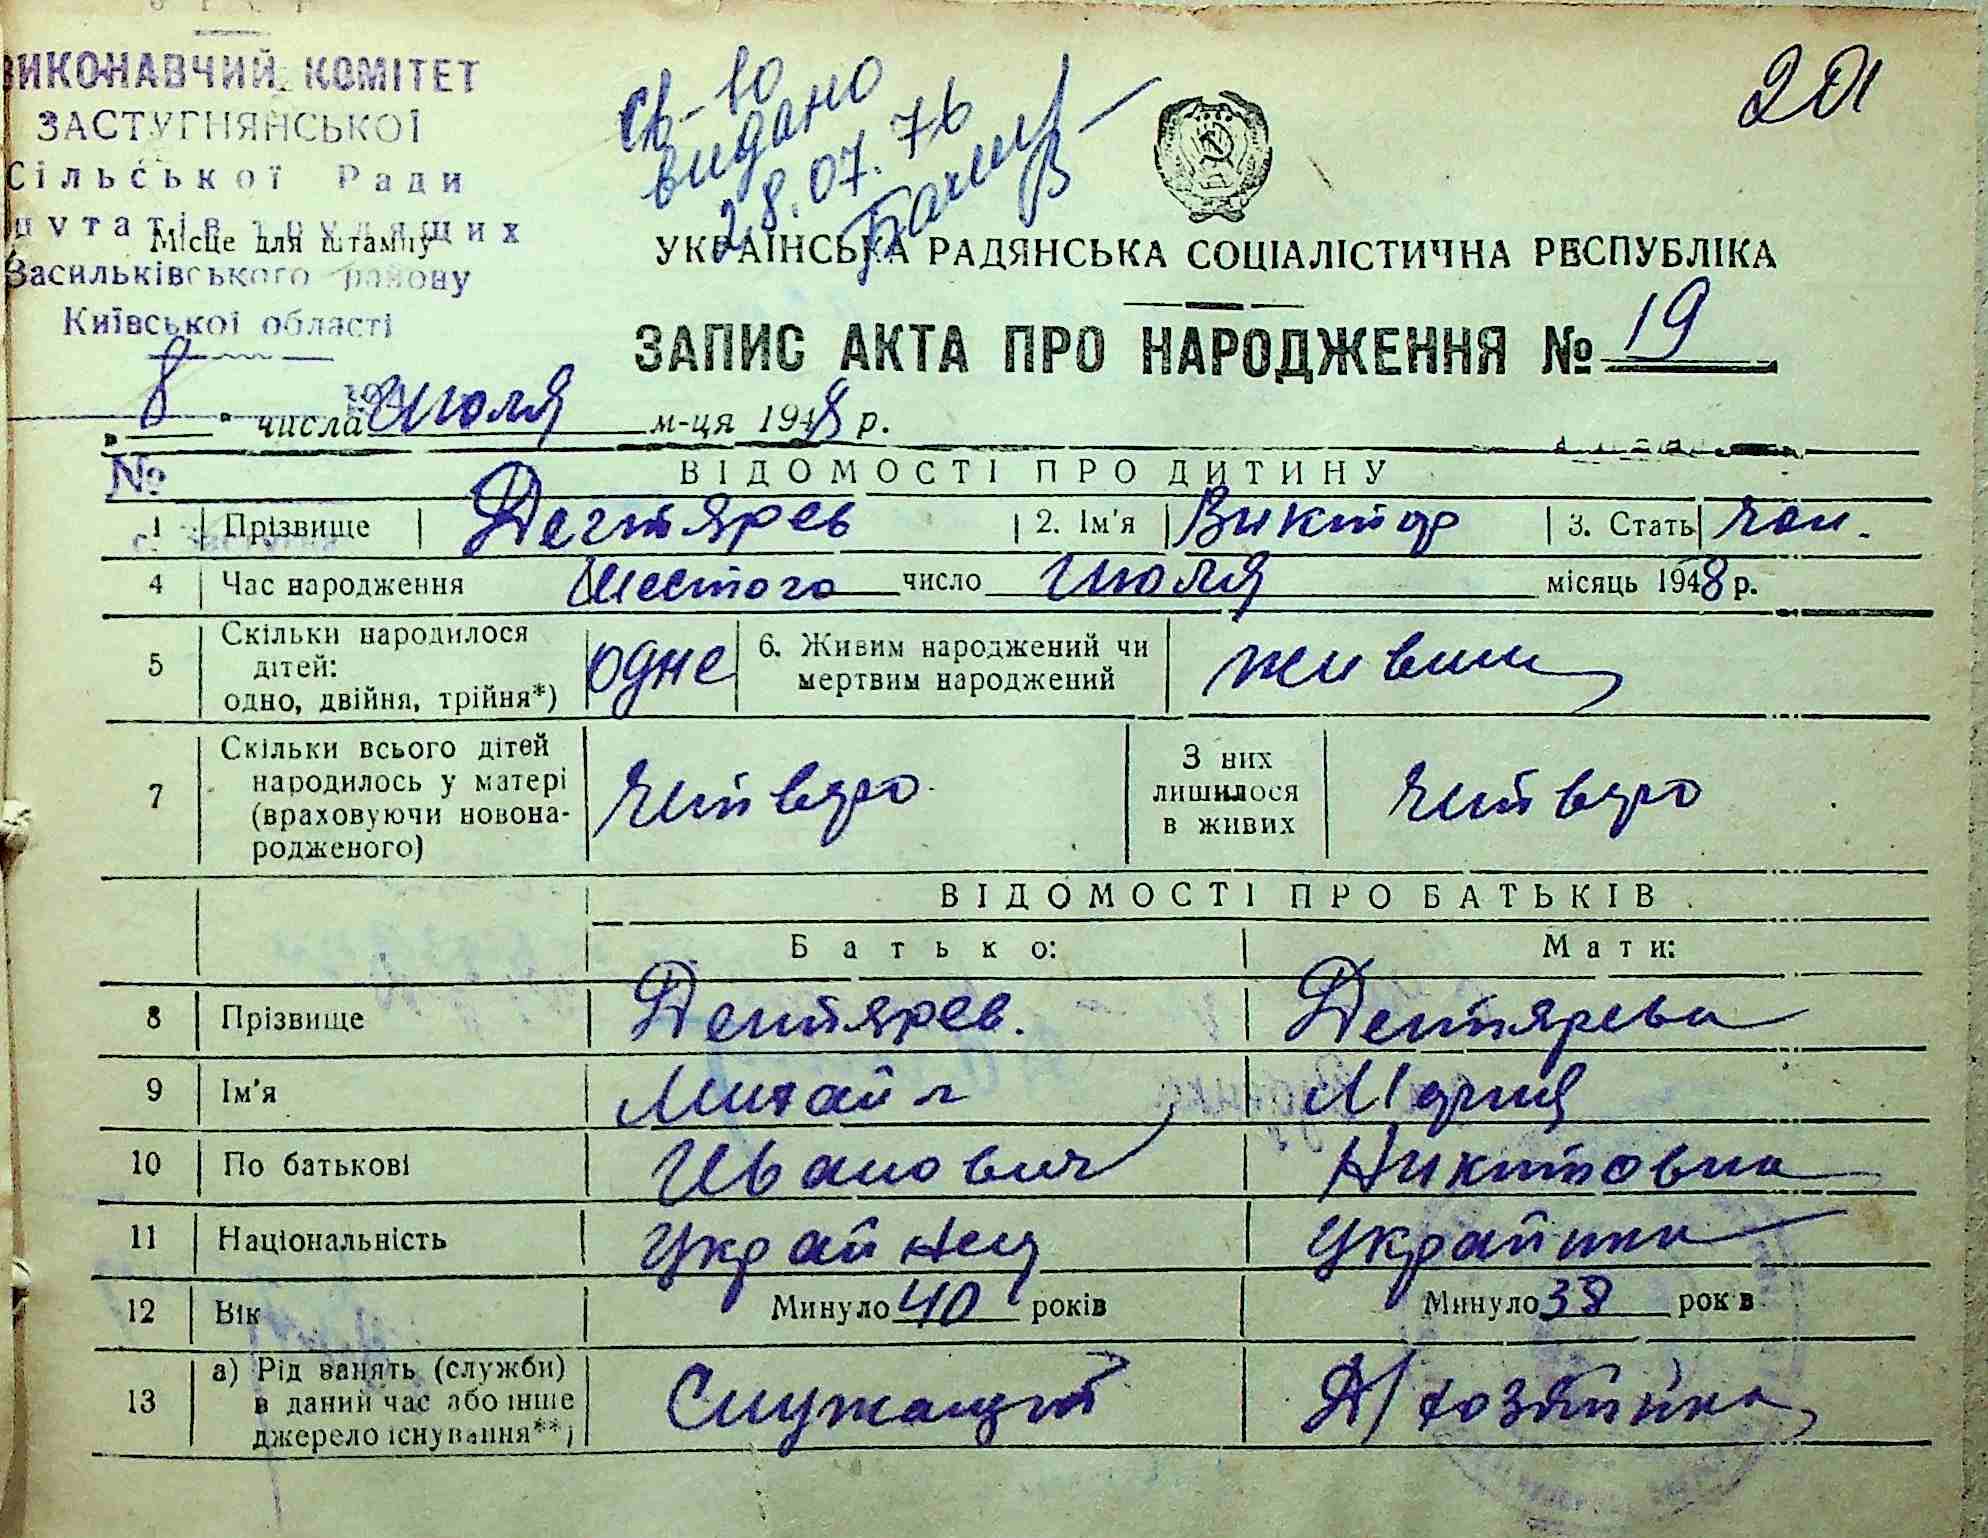 ВИКОНАВЧИЙ КОМІТЕТ
ЗАСТУГНЯНСЬКОЇ
Сільської Ради
путатів трудящих
Місце для штампу
Васильківського району
Київської області
Св-во
видано
28.07.76
201
УКРАЇНСЬКА РАДЯНСЬКА СОЦІАЛІСТИЧНА РЕСПУБЛІКА
ЗАПИС АКТА ПРО НАРОДЖЕННЯ № 19
„8" числа Июля м-ця 1948 р.
№
ВІДОМОСТІ ПРО ДИТИНУ
1 Прізвище Дегтярев 2. Ім'я Виктор 3. Стать чол.
4 Час народження Шестого число Июля місяць 1948 р.
5 Скільки народилося дітей: одно, двійня, трійня*) одне 6. Живим народжений чи мертвим народжений живим
7 Скільки всього дітей народилось у матері (враховуючи новона-родженого) читверо З них лишилося в живих читверо
ВІДОМОСТІ ПРО БАТЬКІВ
Батько: Мати:
8 Прізвище Дегтярев. Дегтярева
9 Ім'я Михайл Мария
10 По батькові Иванович Никитовна
11 Національність Украйнец Украйнка
12 Вік Минуло 40 років Минуло 38 років
13 а) Рід занять (служби) в даний час або інше джерело існування**) Служащий Д/хозяйка